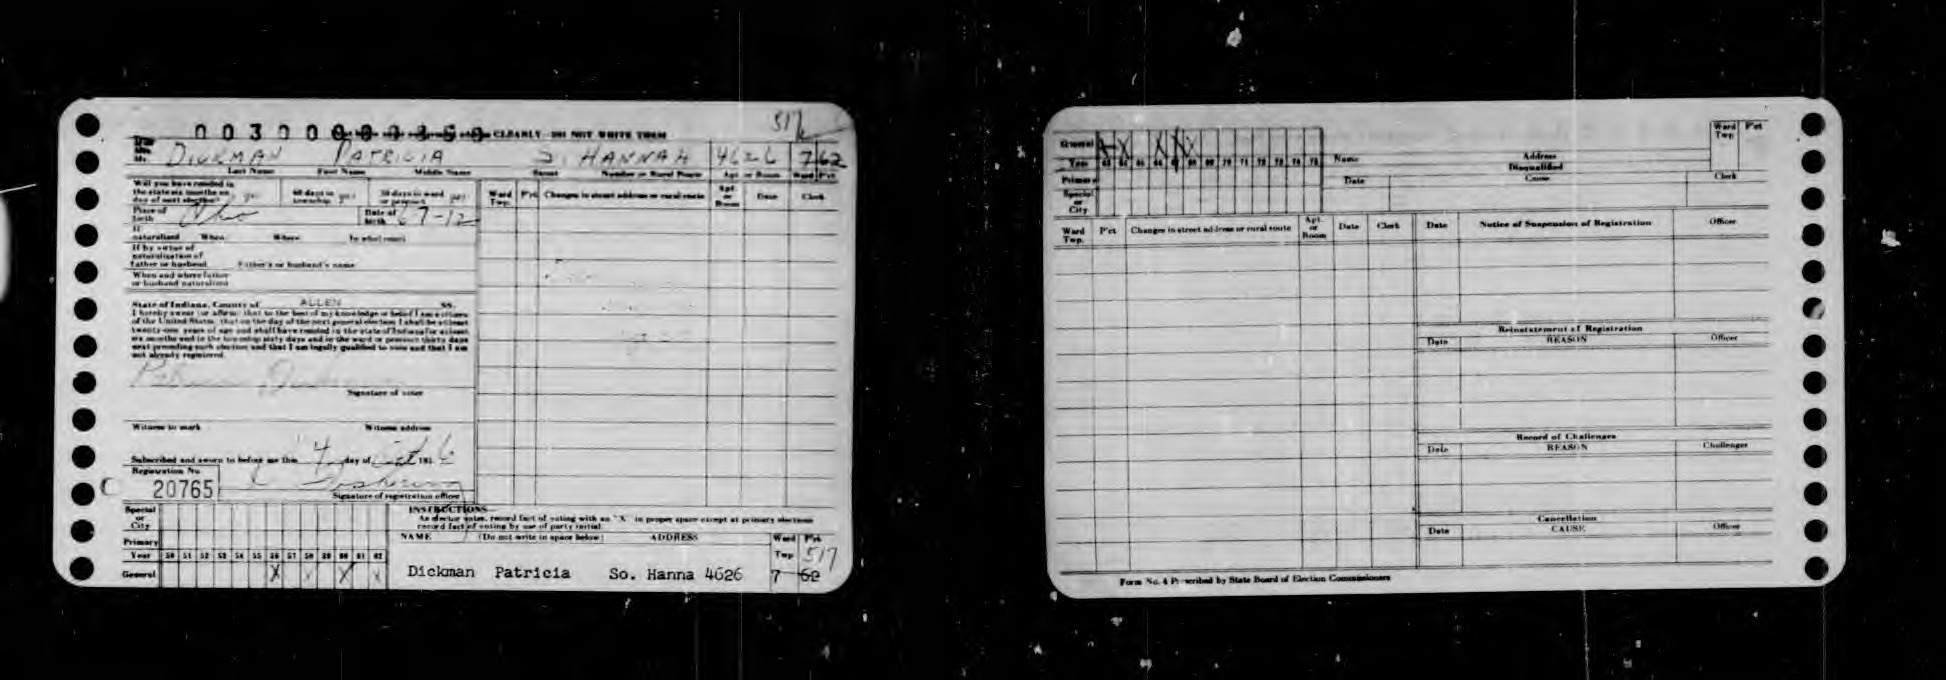 0030000
CLEARLY DO NOT WRITE THEM
517
Mrs. Mr. DICKMAN PATRICIA S. HANNAH 4626 7 62
Last Name First Name Middle Name Street Number or Rural Route Apt. or Room Ward P'ct.
Will you have resided in the state six months on day of next election? yes 60 days in township yes 30 days in ward or precinct yes
Ward Twp. P'ct. Changes in street address or rural route Apt. or Room Date Clerk
Place of birth Ohio Date of birth 6 7-12
If naturalized When Where In what court
If by virtue of naturalization of father or husband Father's or husband's name
When and where father or husband naturalized
State of Indiana, County of ALLEN SS.
I hereby swear (or affirm) that to the best of my knowledge or belief I am a citizen
of the United States, that on the day of the next general election I shall be at least
twenty-one years of age and shall have resided in the state of Indiana for at least
six months and in the township sixty days and in the ward or precinct thirty days
next preceding such election and that I am legally qualified to vote and that I am
not already registered.
Signature of voter
Witness to mark Witness address
Subscribed and sworn to before me this 4 day of
Registration No.
20765
Signature of registration officer
Special or City
Primary
Year 50 51 52 53 54 55 56 57 58 59 60 61 62
General X X X X
INSTRUCTIONS
As elector votes, record fact of voting with an "X" in proper space except at primary elections
record fact of voting by use of party initial.
NAME (Do not write in space below) ADDRESS Ward Twp. P'ct.
517
Dickman Patricia So. Hanna 4626 7 62
General X X X X
Year 63 64 65 66 67 68 69 70 71 72 73 74 75
Primary
Special or City
Name Address Ward Twp. P'ct.
Disqualified
Date Cause Clerk
Ward Twp. P'ct. Changes in street address or rural route Apt. or Room Date Clerk
Date Notice of Suspension of Registration Officer
Reinstatement of Registration
Date REASON Officer
Record of Challenges
Date REASON Challenger
Cancellation
Date CAUSE Officer
Form No. 4 Prescribed by State Board of Election Commissioners